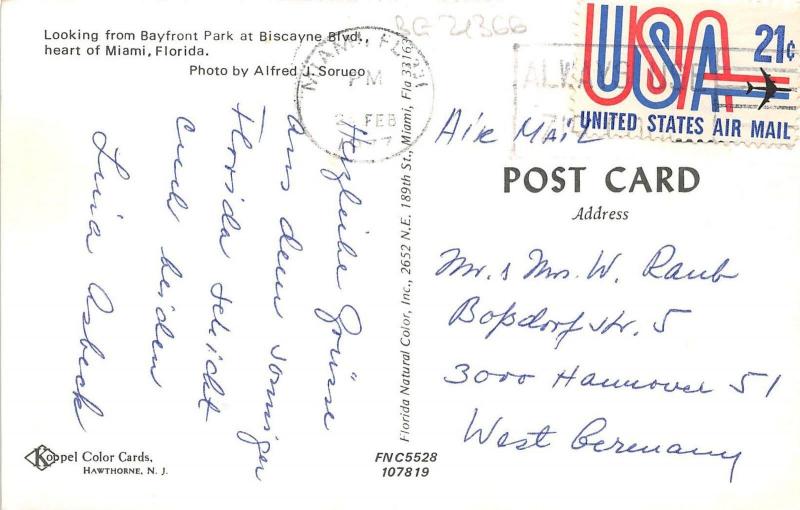 Looking from Bayfront Park at Biscayne Blvd.,
heart of Miami, Florida.
Photo by Alfred J. Soruco
Herzliche Grüsse
aus dem sonnigen
Florida schickt
Euch beiden
Luia Asbeck
Koppel Color Cards.
HAWTHORNE, N. J.
FNC5528
107819
Florida Natural Color, Inc., 2652 N.E. 189th St., Miami, Fla
BG 21366
MIAMI, FL
PM
FEB
ALWAYS
USA 21¢
UNITED STATES AIR MAIL
Air Mail
POST CARD
Address
Mr. & Mrs. W. Raub
Boßdorfstr. 5
3000 Hannover 51
West Germany